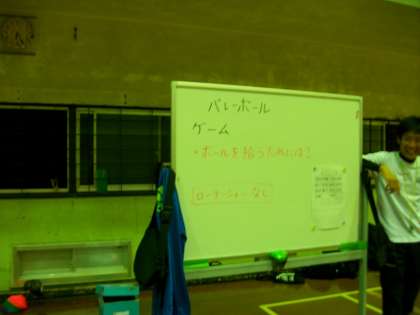 バレーボール
ゲーム
・ボールを拾うためには!
ローテーションなし